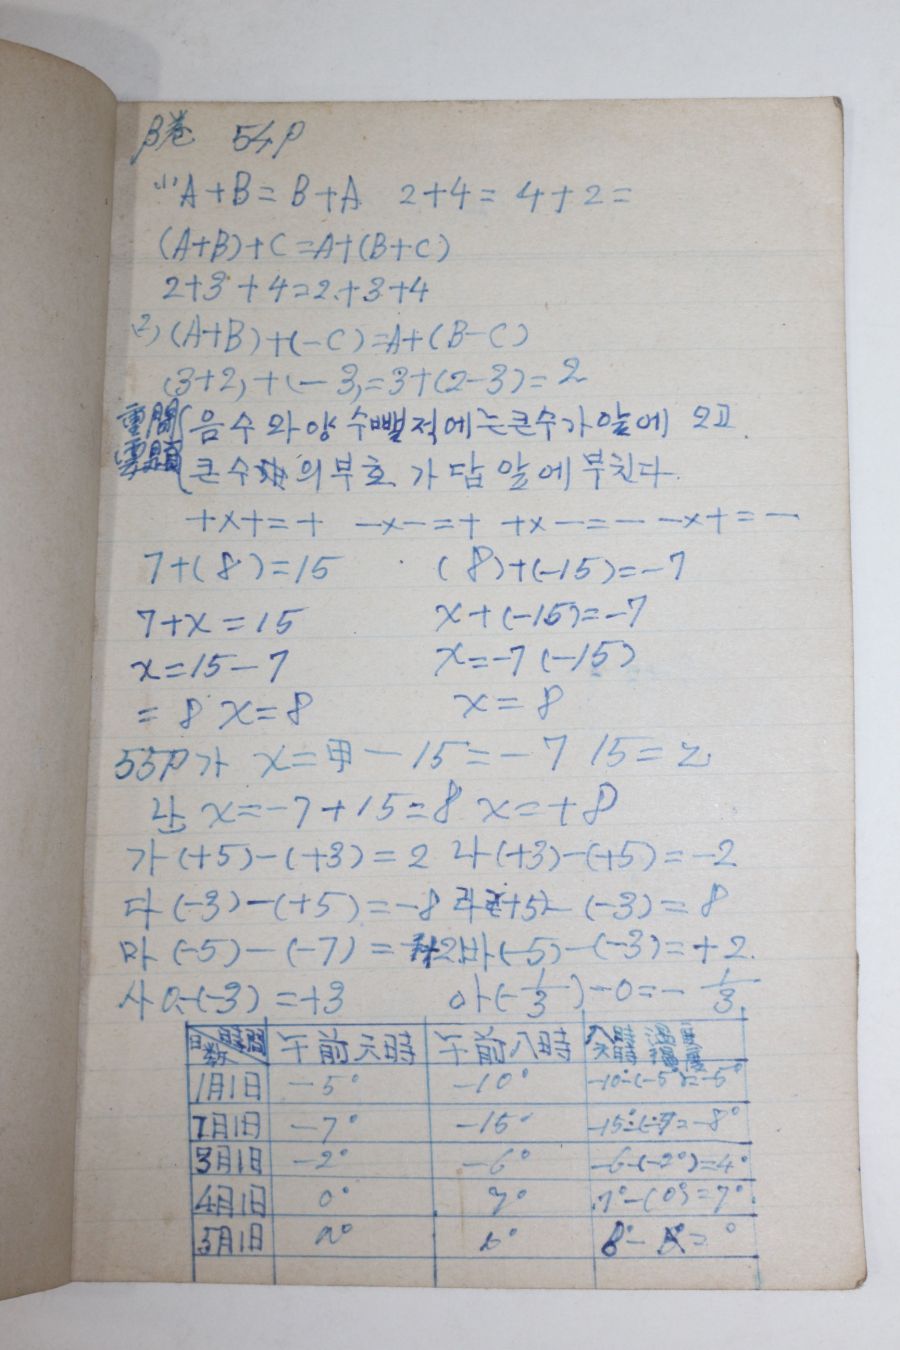 B卷 54P
(1) A+B=B+A 2+4=4+2=
(A+B)+C=A+(B+C)
2+3+4=2+3+4
(2) (A+B)+(-C)=A+(B-C)
(3+2)+(-3)=3+(2-3)=2
음수와양수뺄적에는큰수가앞에 오고
큰수의부호가답앞에부친다.
+×+=+ -×-=+ +×-=- -×+=-
7+(8)=15 (8)+(-15)=-7
7+x=15 x+(-15)=-7
x=15-7 x=-7(-15)
=8 x=8 x=8
55P가 x=甲-15=-7 15=乙
x=-7+15=8 x=+8
가(+5)-(+3)=2 나(+3)-(+5)=-2
다(-3)-(+5)=-8 라(+5)-(-3)=8
마(-5)-(-7)=+2 바(-5)-(-3)=+2.
사0-(-3)=+3 아(-1/3)-0=-1/3.
日數 時間 午前六時 午前八時
1月1日 -5° -10° -10°-(-5°)=-5°
7月1日 -7° -15° -15°-(-7=-8°
3月1日 -2° -6° -6-(-2°)=4°
4月1日 0° 7° 7°-(0°)=7°
5月1日